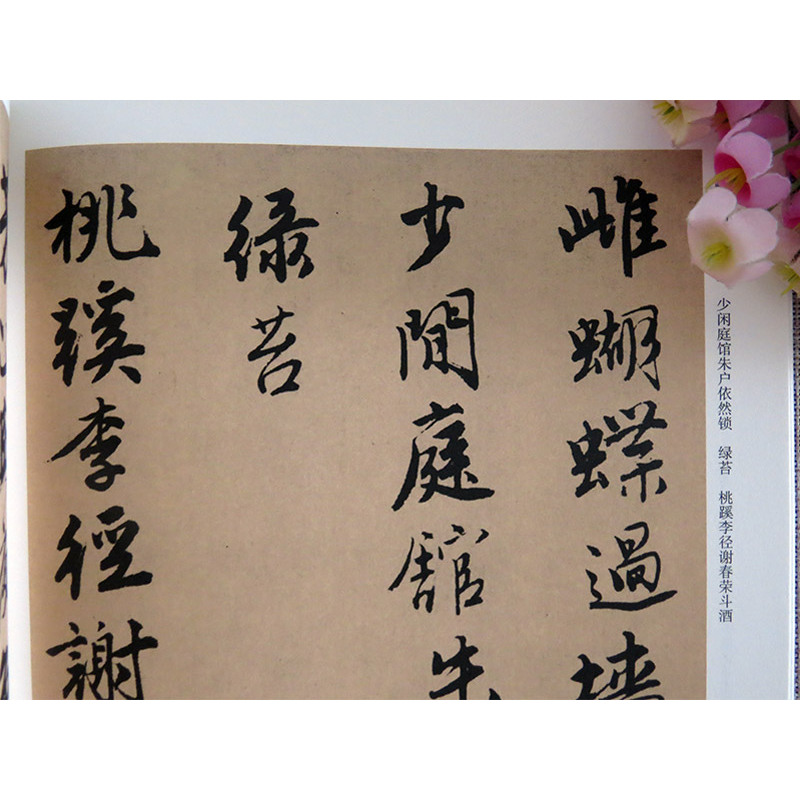 雌蝴蝶過墙
少間庭館朱
緑苔
桃蹊李徑謝
少闲庭馆朱户依然锁　绿苔　桃蹊李径谢春荣斗酒